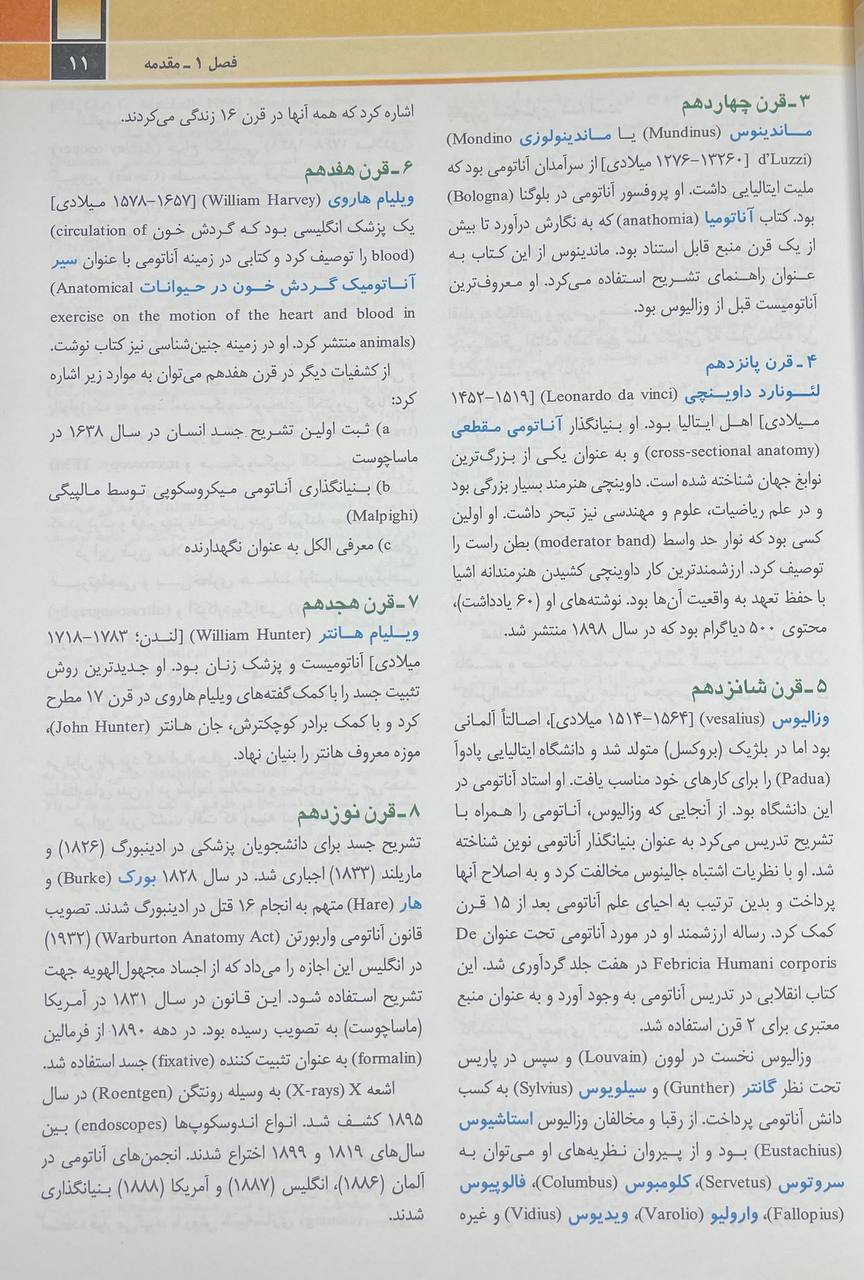 فصل ۱ ـ مقدمه
۱۱
۳ ـ قرن چهاردهم
ماندینوس (Mundinus) یا ماندینولوزی (Mondino
d’Luzzi) [۱۳۲۶۰–۱۲۷۶ میلادی] از سرآمدان آناتومی بود که
ملیت ایتالیایی داشت. او پروفسور آناتومی در بلوگنا (Bologna)
بود. کتاب آناتومیا (anathomia) که به نگارش درآورد تا بیش
از یک قرن منبع قابل استناد بود. ماندینوس از این کتاب به
عنوان راهنمای تشریح استفاده می‌کرد. او معروف‌ترین
آناتومیست قبل از وزالیوس بود.
۴ ـ قرن پانزدهم
لئونارد داوینچی (Leonardo da vinci) [۱۵۱۹–۱۴۵۲
میلادی] اهل ایتالیا بود. او بنیانگذار آناتومی مقطعی
(cross-sectional anatomy) و به عنوان یکی از بزرگ‌ترین
نوابغ جهان شناخته شده است. داوینچی هنرمند بسیار بزرگی بود
و در علم ریاضیات، علوم و مهندسی نیز تبحر داشت. او اولین
کسی بود که نوار حد واسط (moderator band) بطن راست را
توصیف کرد. ارزشمندترین کار داوینچی کشیدن هنرمندانه اشیا
با حفظ تعهد به واقعیت آن‌ها بود. نوشته‌های او (۶۰ یادداشت)،
محتوی ۵۰۰ دیاگرام بود که در سال ۱۸۹۸ منتشر شد.
۵ ـ قرن شانزدهم
وزالیوس (vesalius) [۱۵۶۴–۱۵۱۴ میلادی]، اصالتاً آلمانی
بود اما در بلژیک (بروکسل) متولد شد و دانشگاه ایتالیایی پادوآ
(Padua) را برای کارهای خود مناسب یافت. او استاد آناتومی در
این دانشگاه بود. از آنجایی که وزالیوس، آناتومی را همراه بـا
تشریح تدریس می‌کرد به عنوان بنیانگذار آناتومی نوین شناخته
شد. او با نظریات اشتباه جالینوس مخالفت کرد و به اصلاح آنها
پرداخت و بدین ترتیب به احیای علم آناتومی بعد از ۱۵ قرن
کمک کرد. رساله ارزشمند او در مورد آناتومی تحت عنوان De
Febricia Humani corporis در هفت جلد گردآوری شد. این
کتاب انقلابی در تدریس آناتومی به وجود آورد و به عنوان منبع
معتبری برای ۲ قرن استفاده شد.
وزالیوس نخست در لوون (Louvain) و سپس در پاریس
تحت نظر گانتر (Gunther) و سیلویوس (Sylvius) به کسب
دانش آناتومی پرداخت. از رقبا و مخالفان وزالیوس استاشیوس
(Eustachius) بود و از پیروان نظریه‌های او می‌توان به
سروتوس (Servetus)، کلومبوس (Columbus)، فالوپیوس
(Fallopius)، وارولیو (Varolio)، ویدیوس (Vidius) و غیره
اشاره کرد که همه آنها در قرن ۱۶ زندگی می‌کردند.
۶ ـ قرن هفدهم
ویلیام هاروی (William Harvey) [۱۶۵۷–۱۵۷۸ میلادی]
یک پزشک انگلیسی بود که گردش خون (circulation of
blood) را توصیف کرد و کتابی در زمینه آناتومی با عنوان سیر
آناتومیک گردش خون در حیوانات (Anatomical
exercise on the motion of the heart and blood in
animals) منتشر کرد. او در زمینه جنین‌شناسی نیز کتاب نوشت.
از کشفیات دیگر در قرن هفدهم می‌توان به موارد زیر اشاره
کرد:
a) ثبت اولین تشریح جسد انسان در سال ۱۶۳۸ در
ماساچوست
b) بنیانگذاری آناتومی میکروسکوپی توسط مالپیگی
(Malpighi)
c) معرفی الکل به عنوان نگهدارنده
۷ ـ قرن هجدهم
ویلیام هانتر (William Hunter) [لندن؛ ۱۷۸۳–۱۷۱۸
میلادی] آناتومیست و پزشک زنان بود. او جدیدترین روش
تثبیت جسد را با کمک گفته‌های ویلیام هاروی در قرن ۱۷ مطرح
کرد و با کمک برادر کوچکترش، جان هانتر (John Hunter)،
موزه معروف هانتر را بنیان نهاد.
۸ ـ قرن نوزدهم
تشریح جسد برای دانشجویان پزشکی در ادینبورگ (۱۸۲۶) و
ماریلند (۱۸۳۳) اجباری شد. در سال ۱۸۲۸ بورک (Burke) و
هار (Hare) متهم به انجام ۱۶ قتل در ادینبورگ شدند. تصویب
قانون آناتومی واربورتن (Warburton Anatomy Act) (۱۹۳۲)
در انگلیس این اجازه را می‌داد که از اجساد مجهول‌الهویه جهت
تشریح استفاده شود. این قانون در سال ۱۸۳۱ در آمریکا
(ماساچوست) به تصویب رسیده بود. در دهه ۱۸۹۰ از فرمالین
(formalin) به عنوان تثبیت کننده (fixative) جسد استفاده شد.
اشعه X (X-rays) به وسیله رونتگن (Roentgen) در سال
۱۸۹۵ کشف شد. انواع اندوسکوپ‌ها (endoscopes) بین
سال‌های ۱۸۱۹ و ۱۸۹۹ اختراع شدند. انجمن‌های آناتومی در
آلمان (۱۸۸۶)، انگلیس (۱۸۸۷) و آمریکا (۱۸۸۸) بنیانگذاری
شدند.